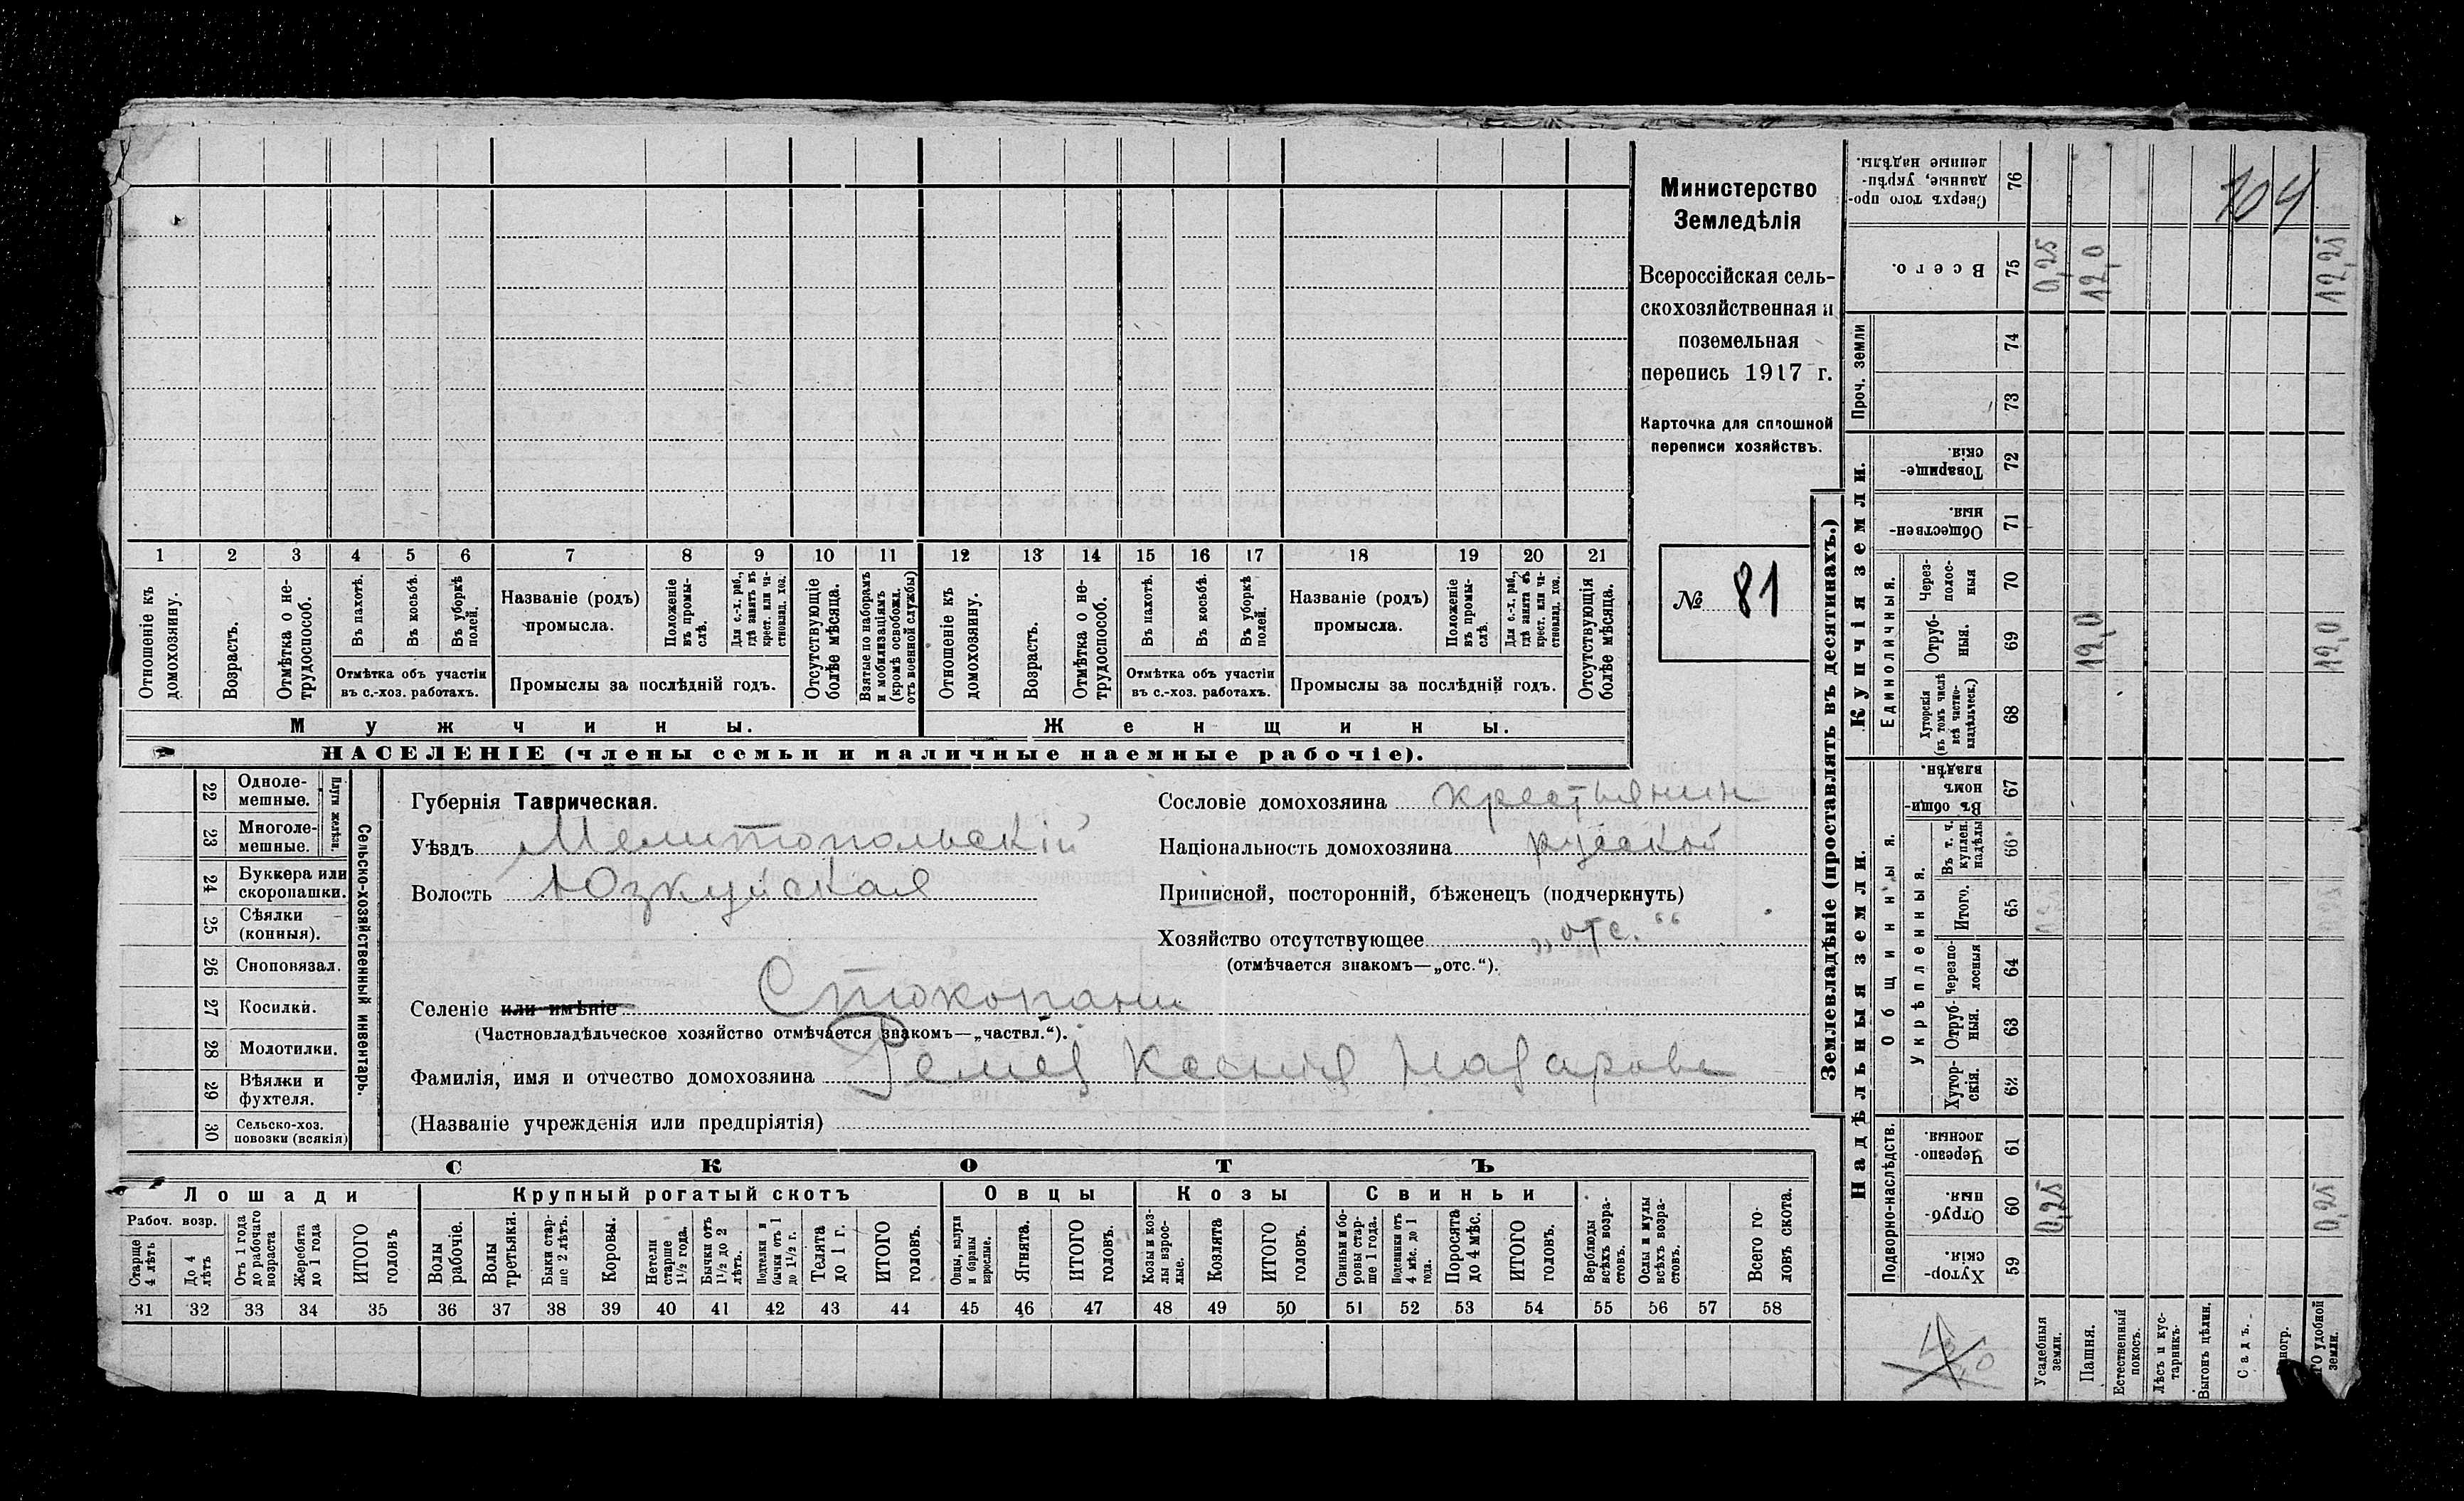 104
Министерство
Земледѣлія
Всероссійская сель-
скохозяйственная и
поземельная
перепись 1917 г.
Карточка для сплошной
переписи хозяйствъ.
№ 81
1 2 3 4 5 6 7 8 9 10 11 12 13 14 15 16 17 18 19 20 21
Отношеніе къ домохозяину.
Возрастъ.
Отмѣтка о не-трудоспособ.
Въ пахотѣ.
Въ косьбѣ.
Въ уборкѣ полей.
Отмѣтка объ участіи
въ с.-хоз. работахъ.
Названіе (родъ)
промысла.
Положеніе въ промы-слѣ.
Для с.-х. раб., гдѣ занятъ въ крест. или ча-стновлад. хоз.
Промыслы за послѣдній годъ.
Отсутствующіе болѣе мѣсяца.
Взятые по наборамъ и мобилизаціямъ (кромѣ освобожд. отъ военной службы)
Отношеніе къ домохозяину.
Возрастъ.
Отмѣтка о не-трудоспособ.
Въ пахотѣ.
Въ косьбѣ.
Въ уборкѣ полей.
Отмѣтка объ участіи
въ с.-хоз. работахъ.
Названіе (родъ)
промысла.
Положеніе въ промы-слѣ.
Для с.-х. раб., гдѣ занята въ крест. или ча-стновлад. хоз.
Промыслы за послѣдній годъ.
Отсутствующія болѣе мѣсяца.
Мужчины.
Женщины.
НАСЕЛЕНІЕ (члены семьи и наличные наемные рабочіе).
Сельско-хозяйственный инвентарь.
Плуги желѣзн.
22 Одноле-
мешные.
23 Многоле-
мешные.
24 Буккера или
скоропашки.
25 Сѣялки
(конныя).
26 Сноповязал.
27 Косилки.
28 Молотилки.
29 Вѣялки и
фухтеля.
30 Сельско-хоз.
повозки (всякія)
Губернія Таврическая.
Уѣздъ Мелитопольскій
Волость Юзкуйская
Сословіе домохозяина крестьянин
Національность домохозяина русской
Приписной, посторонній, бѣженецъ (подчеркнуть)
Хозяйство отсутствующее „отс.“
(отмѣчается знакомъ—„отс.“).
Селеніе или имѣніе Стокопани
(Частновладѣльческое хозяйство отмѣчается знакомъ—„частвл.“).
Фамилія, имя и отчество домохозяина Ремез Ксения Назарова
(Названіе учрежденія или предпріятія)
СКОТЪ
Лошади
Крупный рогатый скотъ
Овцы
Козы
Свиньи
Рабоч. возр.
Старше 4 лѣтъ
До 4 лѣтъ
Отъ 1 года до рабочаго возраста
Жеребята до 1 года
ИТОГО головъ
Волы рабочіе.
Волы третьяки.
Быки стар-ше 2 лѣтъ.
Коровы.
Нетели старше 1½ года.
Бычки отъ 1½ до 2 лѣтъ.
Подтелки и бычки отъ 1 до 1½ г.
Телята до 1 г.
ИТОГО головъ.
Овцы, валухи и бараны взрослые.
Ягнята.
ИТОГО головъ.
Козы и коз-лы взрос-лые.
Козлята
ИТОГО головъ.
Свиньи и бо-ровы стар-ше 1 года.
Подсвинки отъ 4 мѣс. до 1 года.
Поросята до 4 мѣс.
ИТОГО головъ.
Верблюды всѣхъ возра-стовъ.
Ослы и мулы всѣхъ возра-стовъ.
Всего го-ловъ скота.
31 32 33 34 35 36 37 38 39 40 41 42 43 44 45 46 47 48 49 50 51 52 53 54 55 56 57 58
Землевладѣніе (проставлять въ десятинахъ.)
Надѣльныя земли.
Купчія земли.
Проч. земли
Подворно-наслѣдств.
Общинныя.
Укрѣпленныя.
Единоличныя.
Сверхъ того про-данные, укрѣп-ленные надѣлы. 76
Всего. 75 0,25 12,0 12,25
74
73
Товарище-скія 72
Обществен-ныя. 71
Через-полос-ныя 70
Отруб-ныя. 69 12,0 12,0
Хуторскія (въ томъ числѣ всѣ частно-владѣльческ.) 68
Въ общин-номъ владѣн. 67
Въ т. ч. куплен. надѣлы 66
Итого. 65
Черезпо-лосныя 64
Отруб-ныя. 63
Хутор-скія. 62
Черезпо-лосныя. 61
Отруб-ныя. 60 0,25 0,25
Хутор-скія. 59
Усадебныя земли.
Пашня.
Естественный покосъ.
Лѣсъ и кус-тарникъ.
Выгонъ цѣлин.
Садъ.
удобной земли.